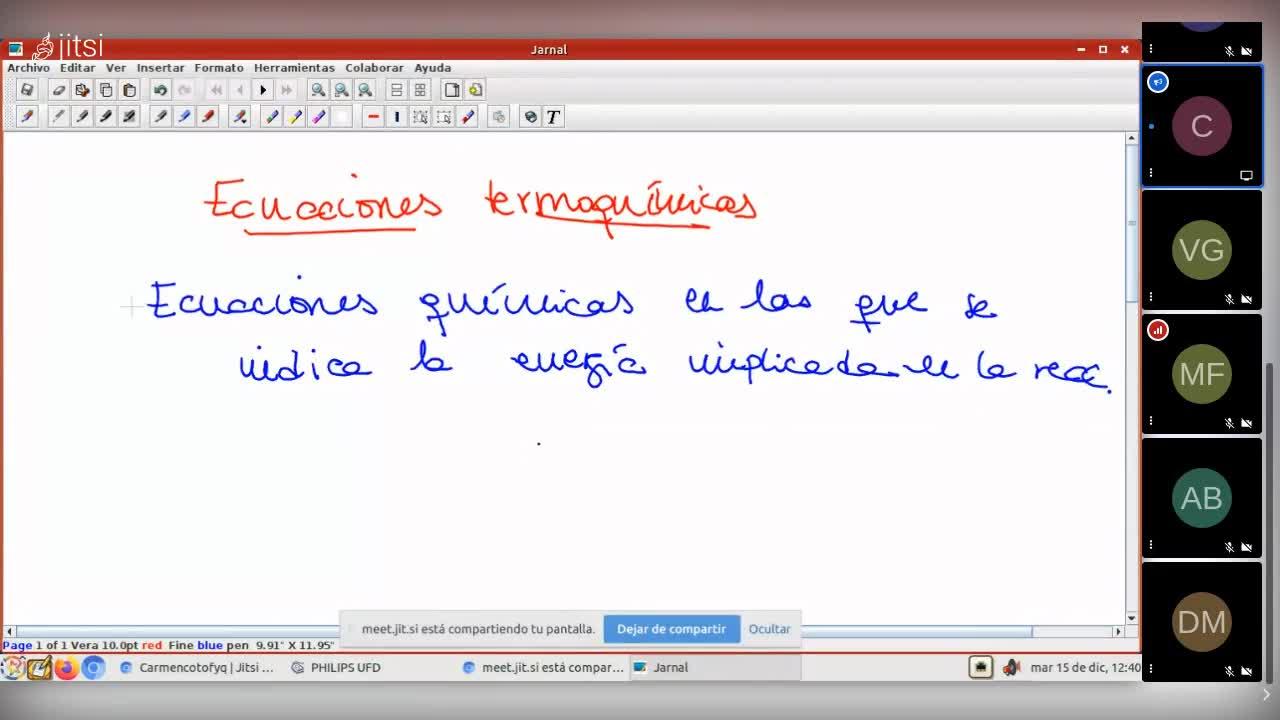 jitsi
Jarnal
Archivo Editar Ver Insertar Formato Herramientas Colaborar Ayuda
T
Ecuaciones termoquímicas
Ecuaciones químicas en las que se
indica la energía implicada en la reac.
meet.jit.si está compartiendo tu pantalla. Dejar de compartir Ocultar
Page 1 of 1 Vera 10.0pt red Fine blue pen 9.91" X 11.95"
Carmencotofyq | Jitsi ... PHILIPS UFD meet.jit.si está compar... Jarnal mar 15 de dic, 12:40
C
VG
MF
AB
DM